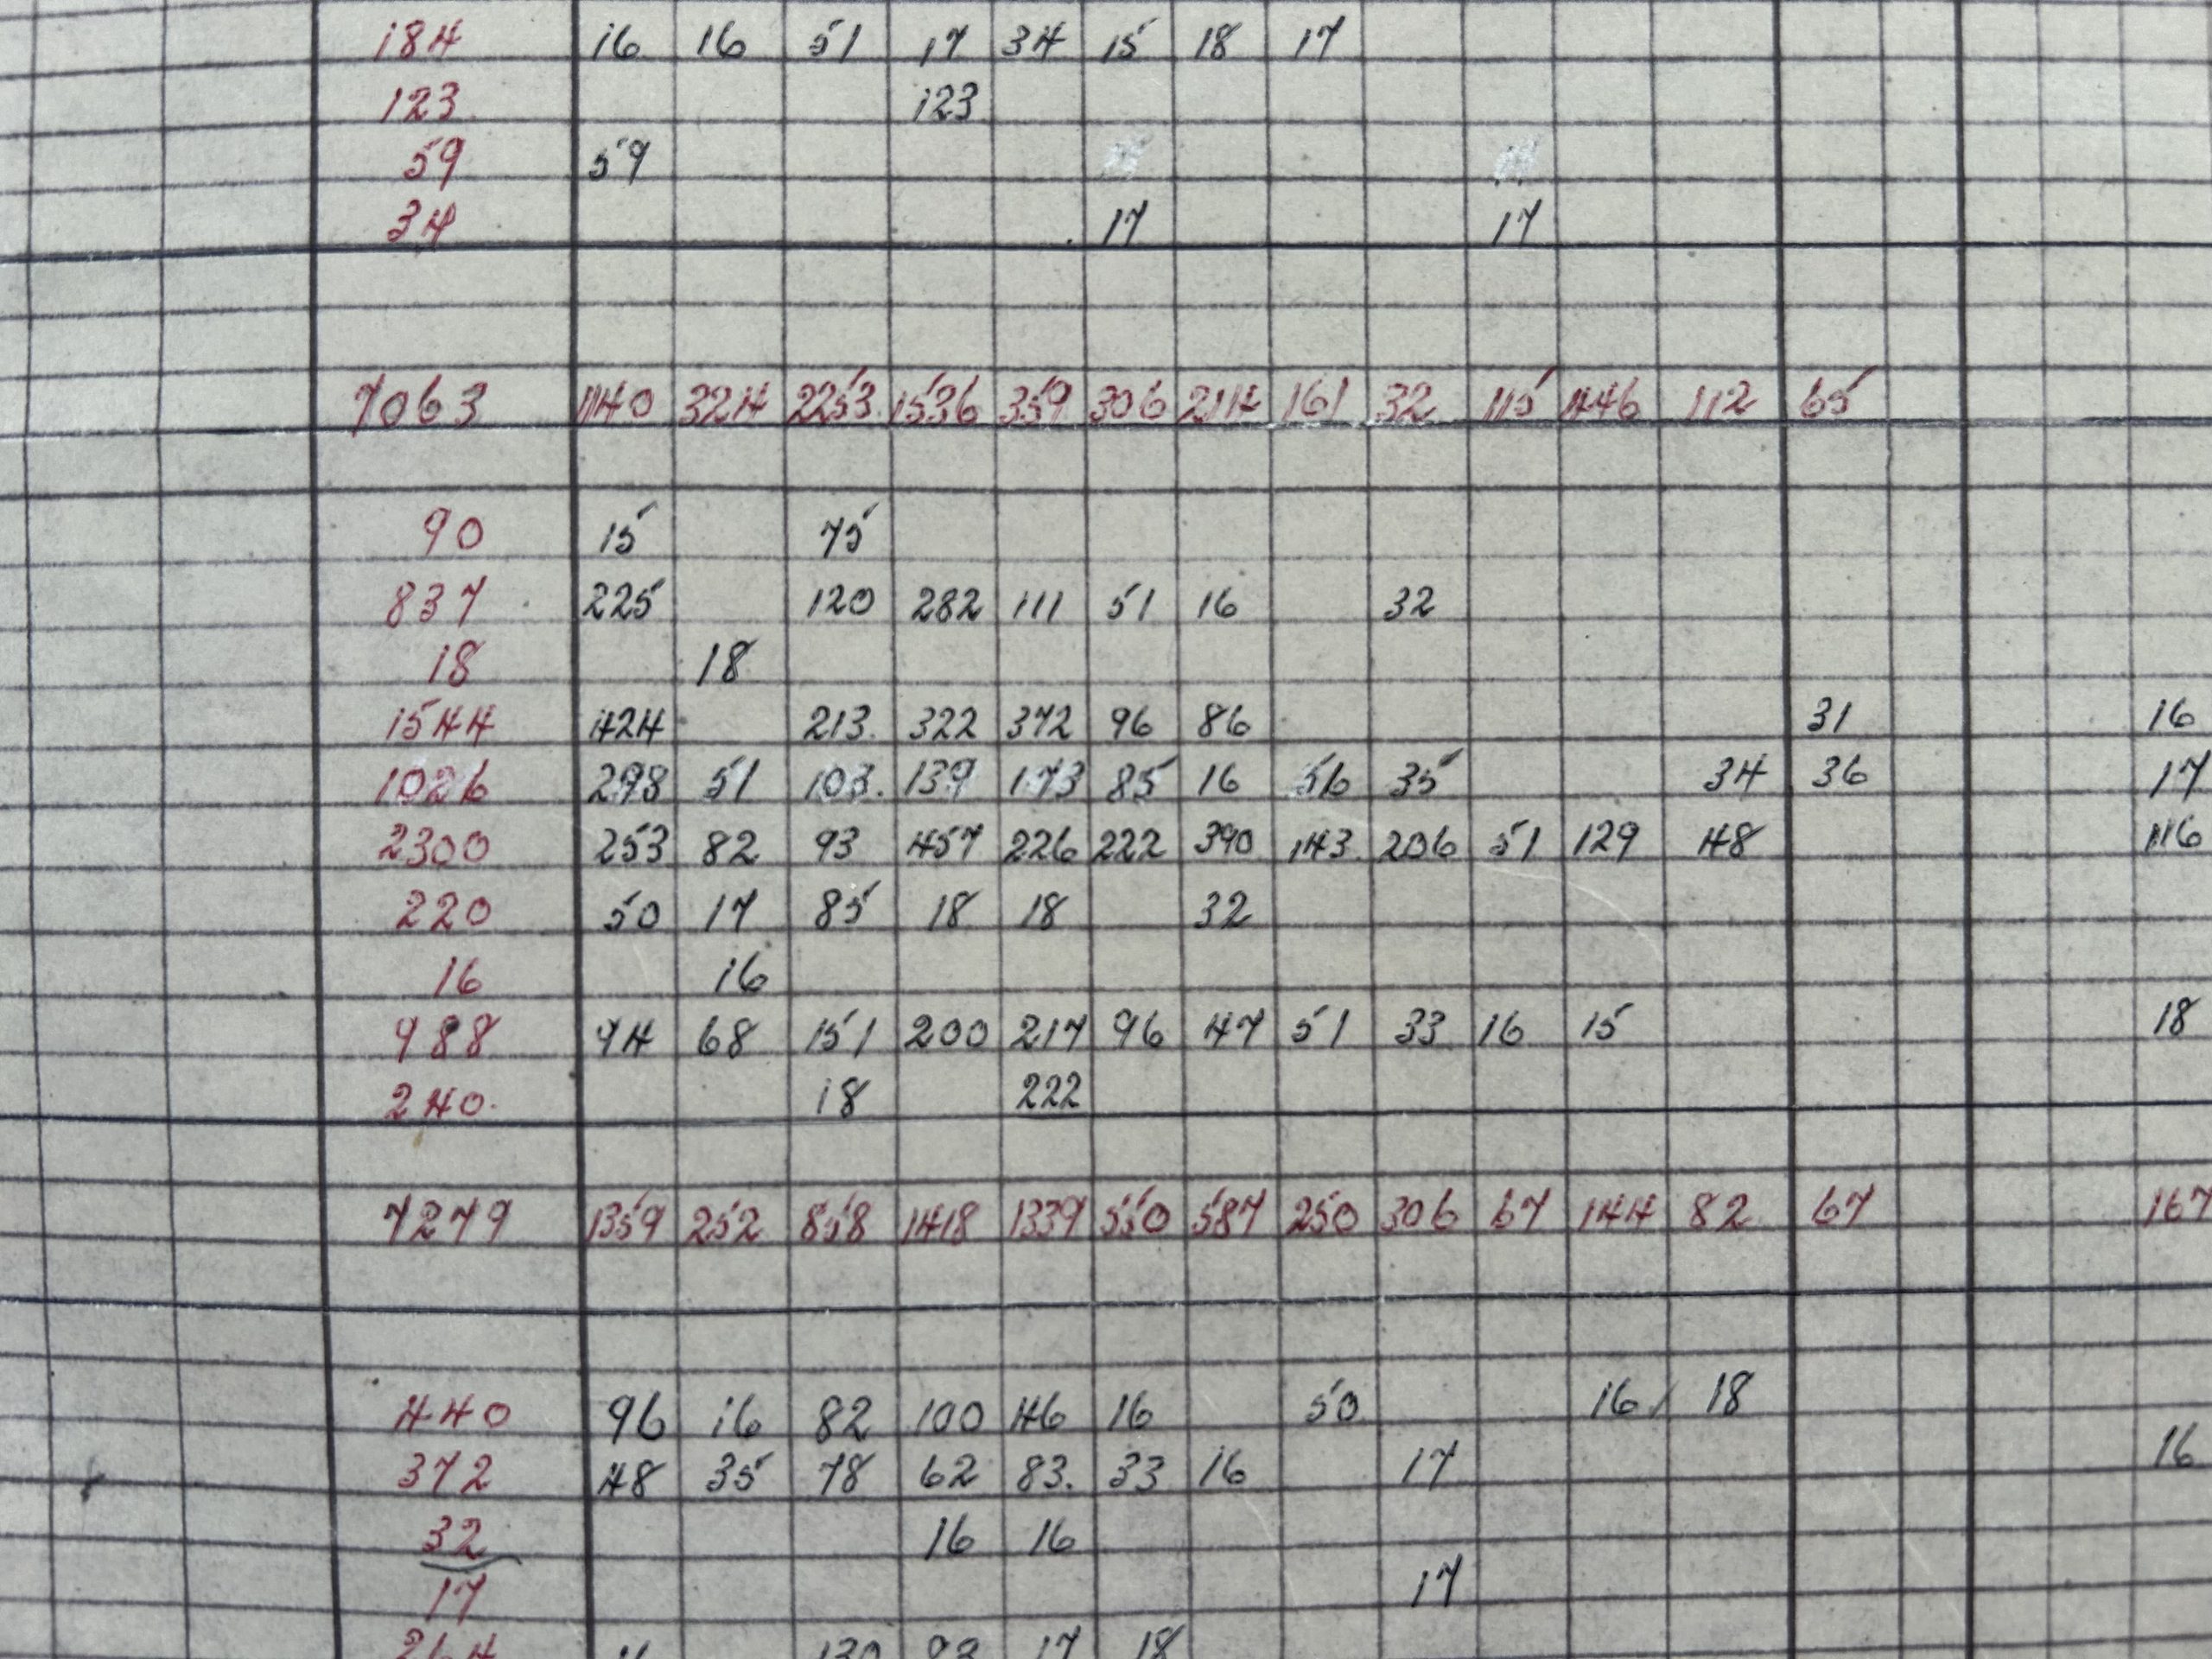 184 16 16 51 17 34 15 18 17
123 123
59 59
34 17 17
7063 1140 324 2253 1536 359 306 214 161 32 115 446 112 65
90 15 75
837 225 120 282 111 51 16 32
18 18
1544 424 213 322 372 96 86 31 16
1026 298 51 103 139 173 85 16 56 35 34 36 17
2300 253 82 93 457 226 222 390 143 206 51 129 48 116
220 50 17 85 18 18 32
16 16
988 94 68 151 200 217 96 47 51 33 16 15 18
240 18 222
7279 1359 252 858 1418 1339 550 587 250 306 67 144 82 67 167
440 96 16 82 100 46 16 50 16 18
372 48 35 78 62 83 33 16 17 16
32 16 16
17 17
264 17 18